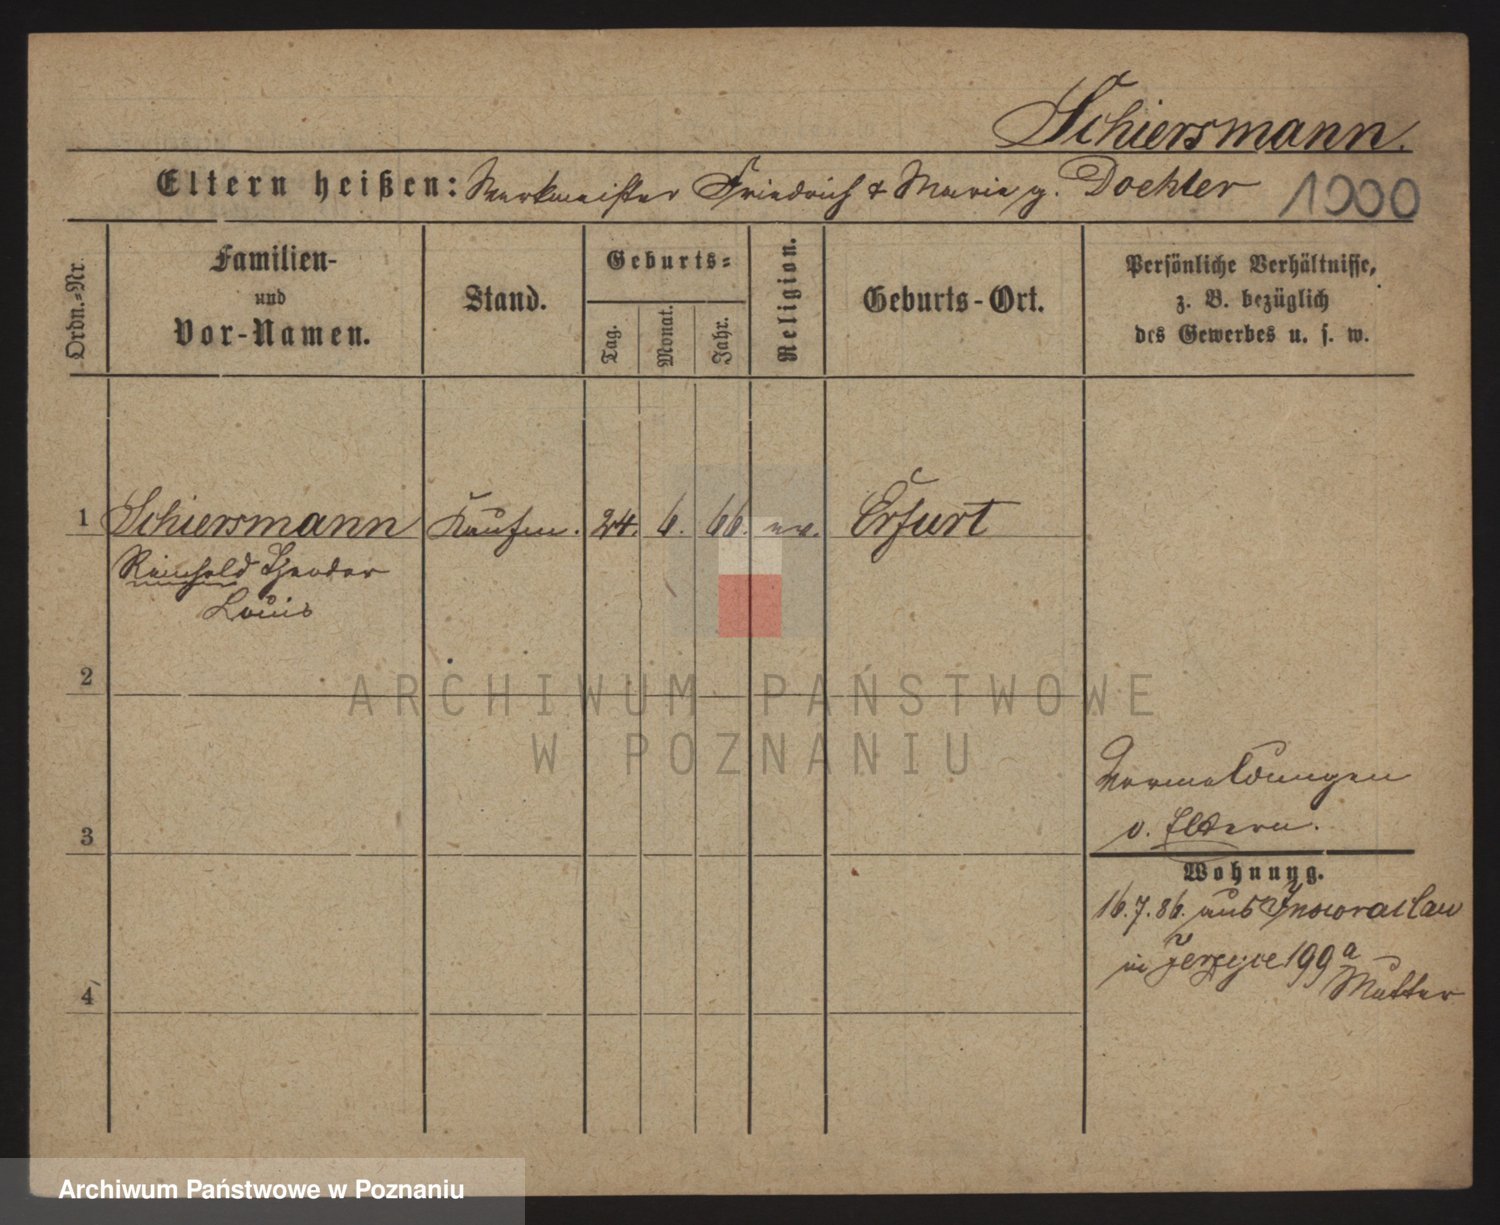 Schiersmann.
Eltern heißen: Werkmeister Friedrich & Marie g. Dochter
1900
Ordn.-Nr.
Familien-
und
Vor-Namen.
Stand.
Geburts-
Tag.
Monat.
Jahr.
Religion.
Geburts-Ort.
Persönliche Verhältnisse,
z. B. bezüglich
des Gewerbes u. s. w.
1 Schiersmann Kaufm. 24. 6. 66. ev. Erfurt
Reinhold Theodor
Louis
2
ARCHIWUM PAŃSTWOWE
W POZNANIU
3
Vermeldungen
v. Eltern.
Wohnung.
16.7.86. aus Inowraclaw
in Jerzyce 199a
Mutter
4
Archiwum Państwowe w Poznaniu